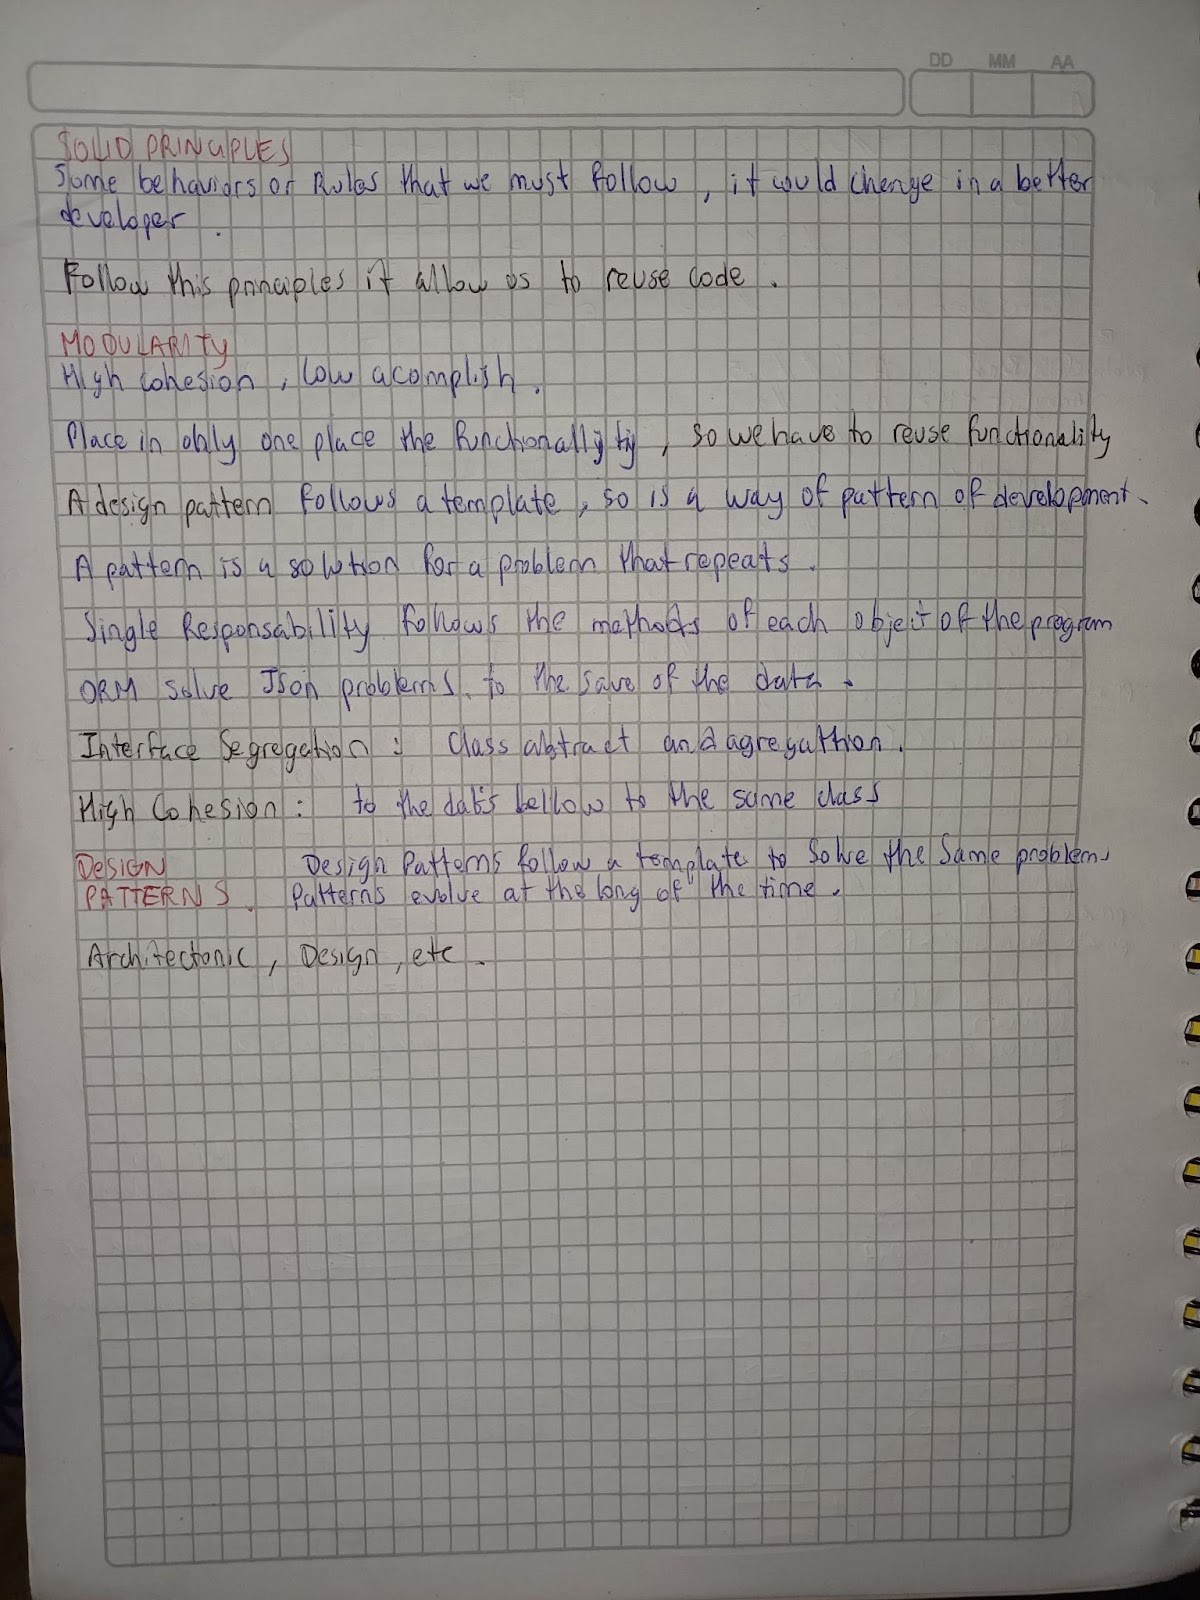 DD MM AA
SOLID PRINCIPLES
Some behaviors or Rules that we must follow, it would change in a better
developer.
Follow this principles it allow us to reuse code.
MODULARITY
High cohesion, low acomplish.
Place in only one place the functionality, so we have to reuse functionality
A design pattern follows a template, so is a way of pattern of development.
A pattern is a solution for a problem that repeats.
Single Responsability follows the methods of each object of the program
ORM solve Json problems, to the save of the data.
Interface Segregation: Class abstract and agregattion.
High Cohesion: to the bellow to the same class
DESIGN Design Patterns follow a template to solve the same problem,
PATTERNS. Patterns evolve at the long of the time.
Architectonic, Design, etc.